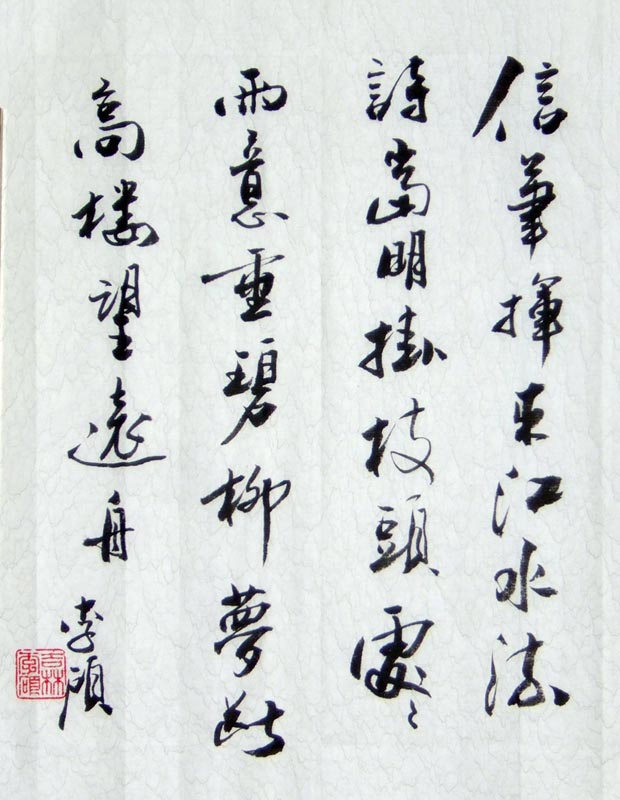 信筆揮来江水流
詩當明掛枝頭處々
雨意重碧柳夢斷
高樓望遠舟
李碩